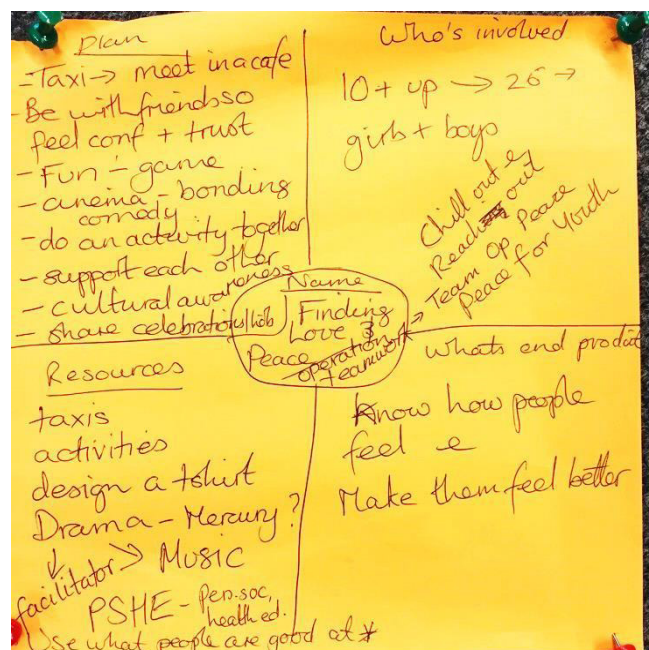 Plan
- Taxi → meet in a cafe
- Be with friends so
feel conf + trust
- Fun - game
- cinema - bonding
comedy
- do an activity together
- support each other
- cultural awareness
- share celebrations/hols
Who's involved
10 + up → 26 →
girls + boys
Chill out &
Reach out
Team Op Peace
Peace for Youth
Name
Finding
Love &
Peace
operation
teamwork →
Resources
taxis
activities
design a tshirt
Drama - Mercury?
facilitator → Music
PSHE - Per.soc,
health ed.
Use what people are good at *
Whats end product
Know how people
feel &
Make them feel better